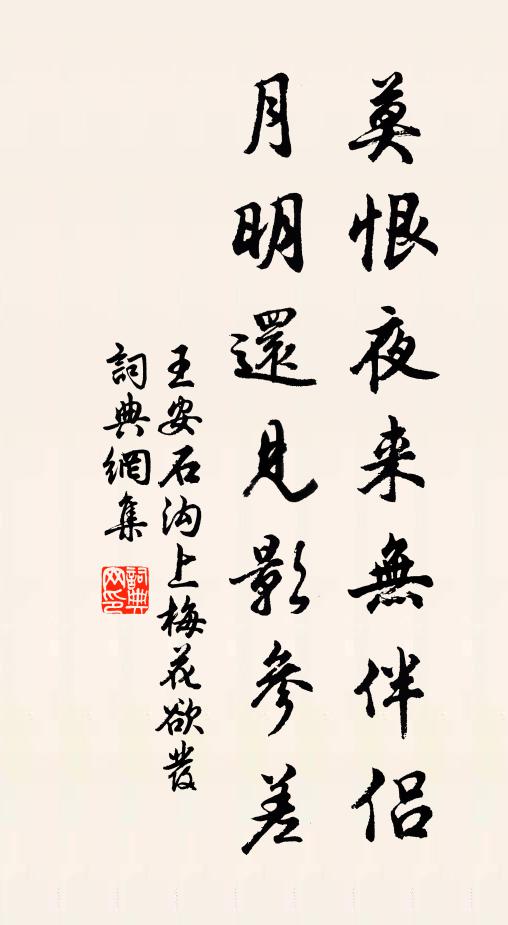 莫恨夜来無伴侣
月明還見影參差
王安石沟上梅花欲發
詞典網集
詞典网印